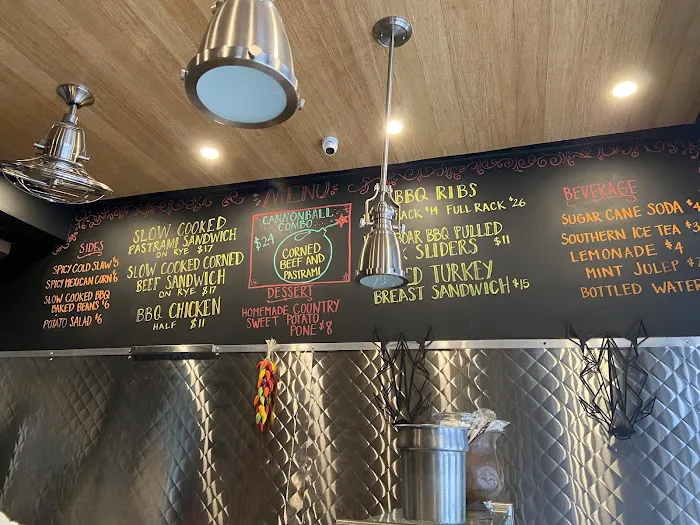 MENU
SIDES
SPICY COLD SLAW $5
SPICY MEXICAN CORN $6
SLOW COOKED BBQ
BAKED BEANS $6
POTATO SALAD $6
SLOW COOKED
PASTRAMI SANDWICH
ON RYE $17
SLOW COOKED CORNED
BEEF SANDWICH
ON RYE $17
BBQ CHICKEN
HALF $11
CANNONBALL
COMBO
$24
CORNED
BEEF AND
PASTRAMI
DESSERT
HOMEMADE COUNTRY
SWEET POTATO
PONE $8
BBQ RIBS
$14 FULL RACK $26
BBQ PULLED
SLIDERS $11
TURKEY
BREAST SANDWICH $15
BEVERAGE
SUGAR CANE SODA $4
SOUTHERN ICE TEA $3
LEMONADE $4
MINT JULEP $7
BOTTLED WATER